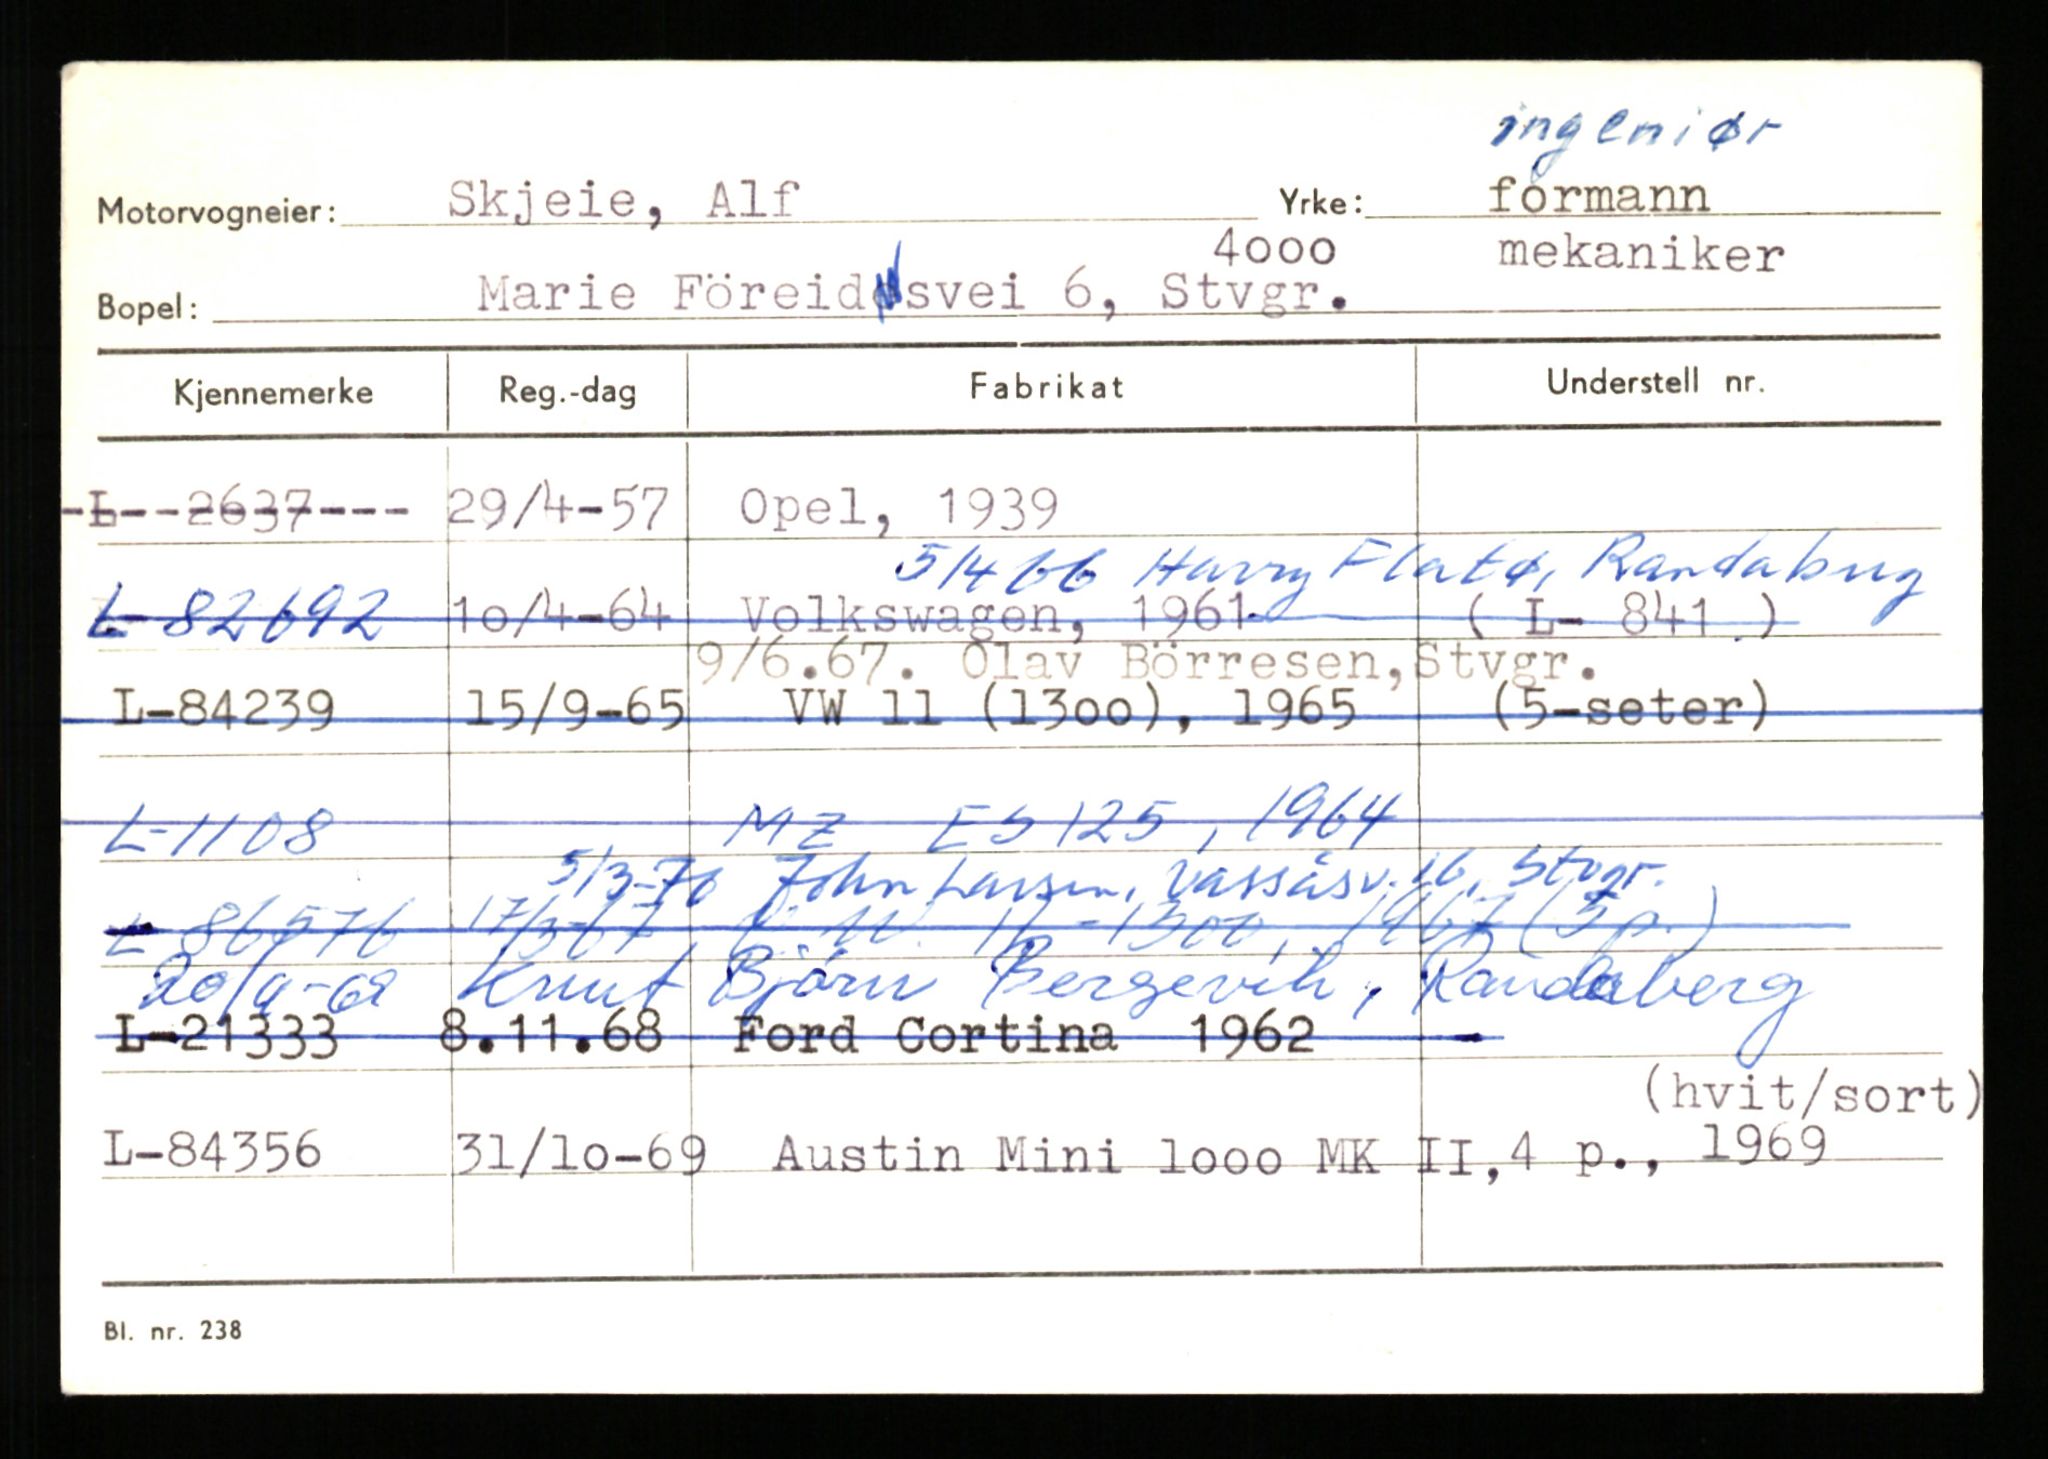 ingeniør
Motorvogneier: Skjeie, Alf Yrke: formann
4ooo mekaniker
Bopel: Marie Föreidsvei 6, Stvgr.
Kjennemerke Reg.-dag Fabrikat Understell nr.
L--2637--- 29/4-57 Opel, 1939
5/4 66 Harry Flatø, Randaberg
L-82692 1o/4-64 Volkswagen, 1961 ( L- 841 )
9/6.67. Olav Börresen, Stvgr.
L-84239 15/9-65 VW 11 (13oo), 1965 (5-seter)
L-1108 MZ ES 125, 1964
5/3-70 John Larsen, Vassåsv. 16, Stvgr.
L-86576 17/3-67 V W 11-1300, 1967 (5 p.)
20/9-69 Knut Björn Bergevik, Randaberg
L-21333 8.11.68 Ford Cortina 1962
(hvit/sort)
L-84356 31/1o-69 Austin Mini 1ooo MK II, 4 p., 1969
Bl. nr. 238